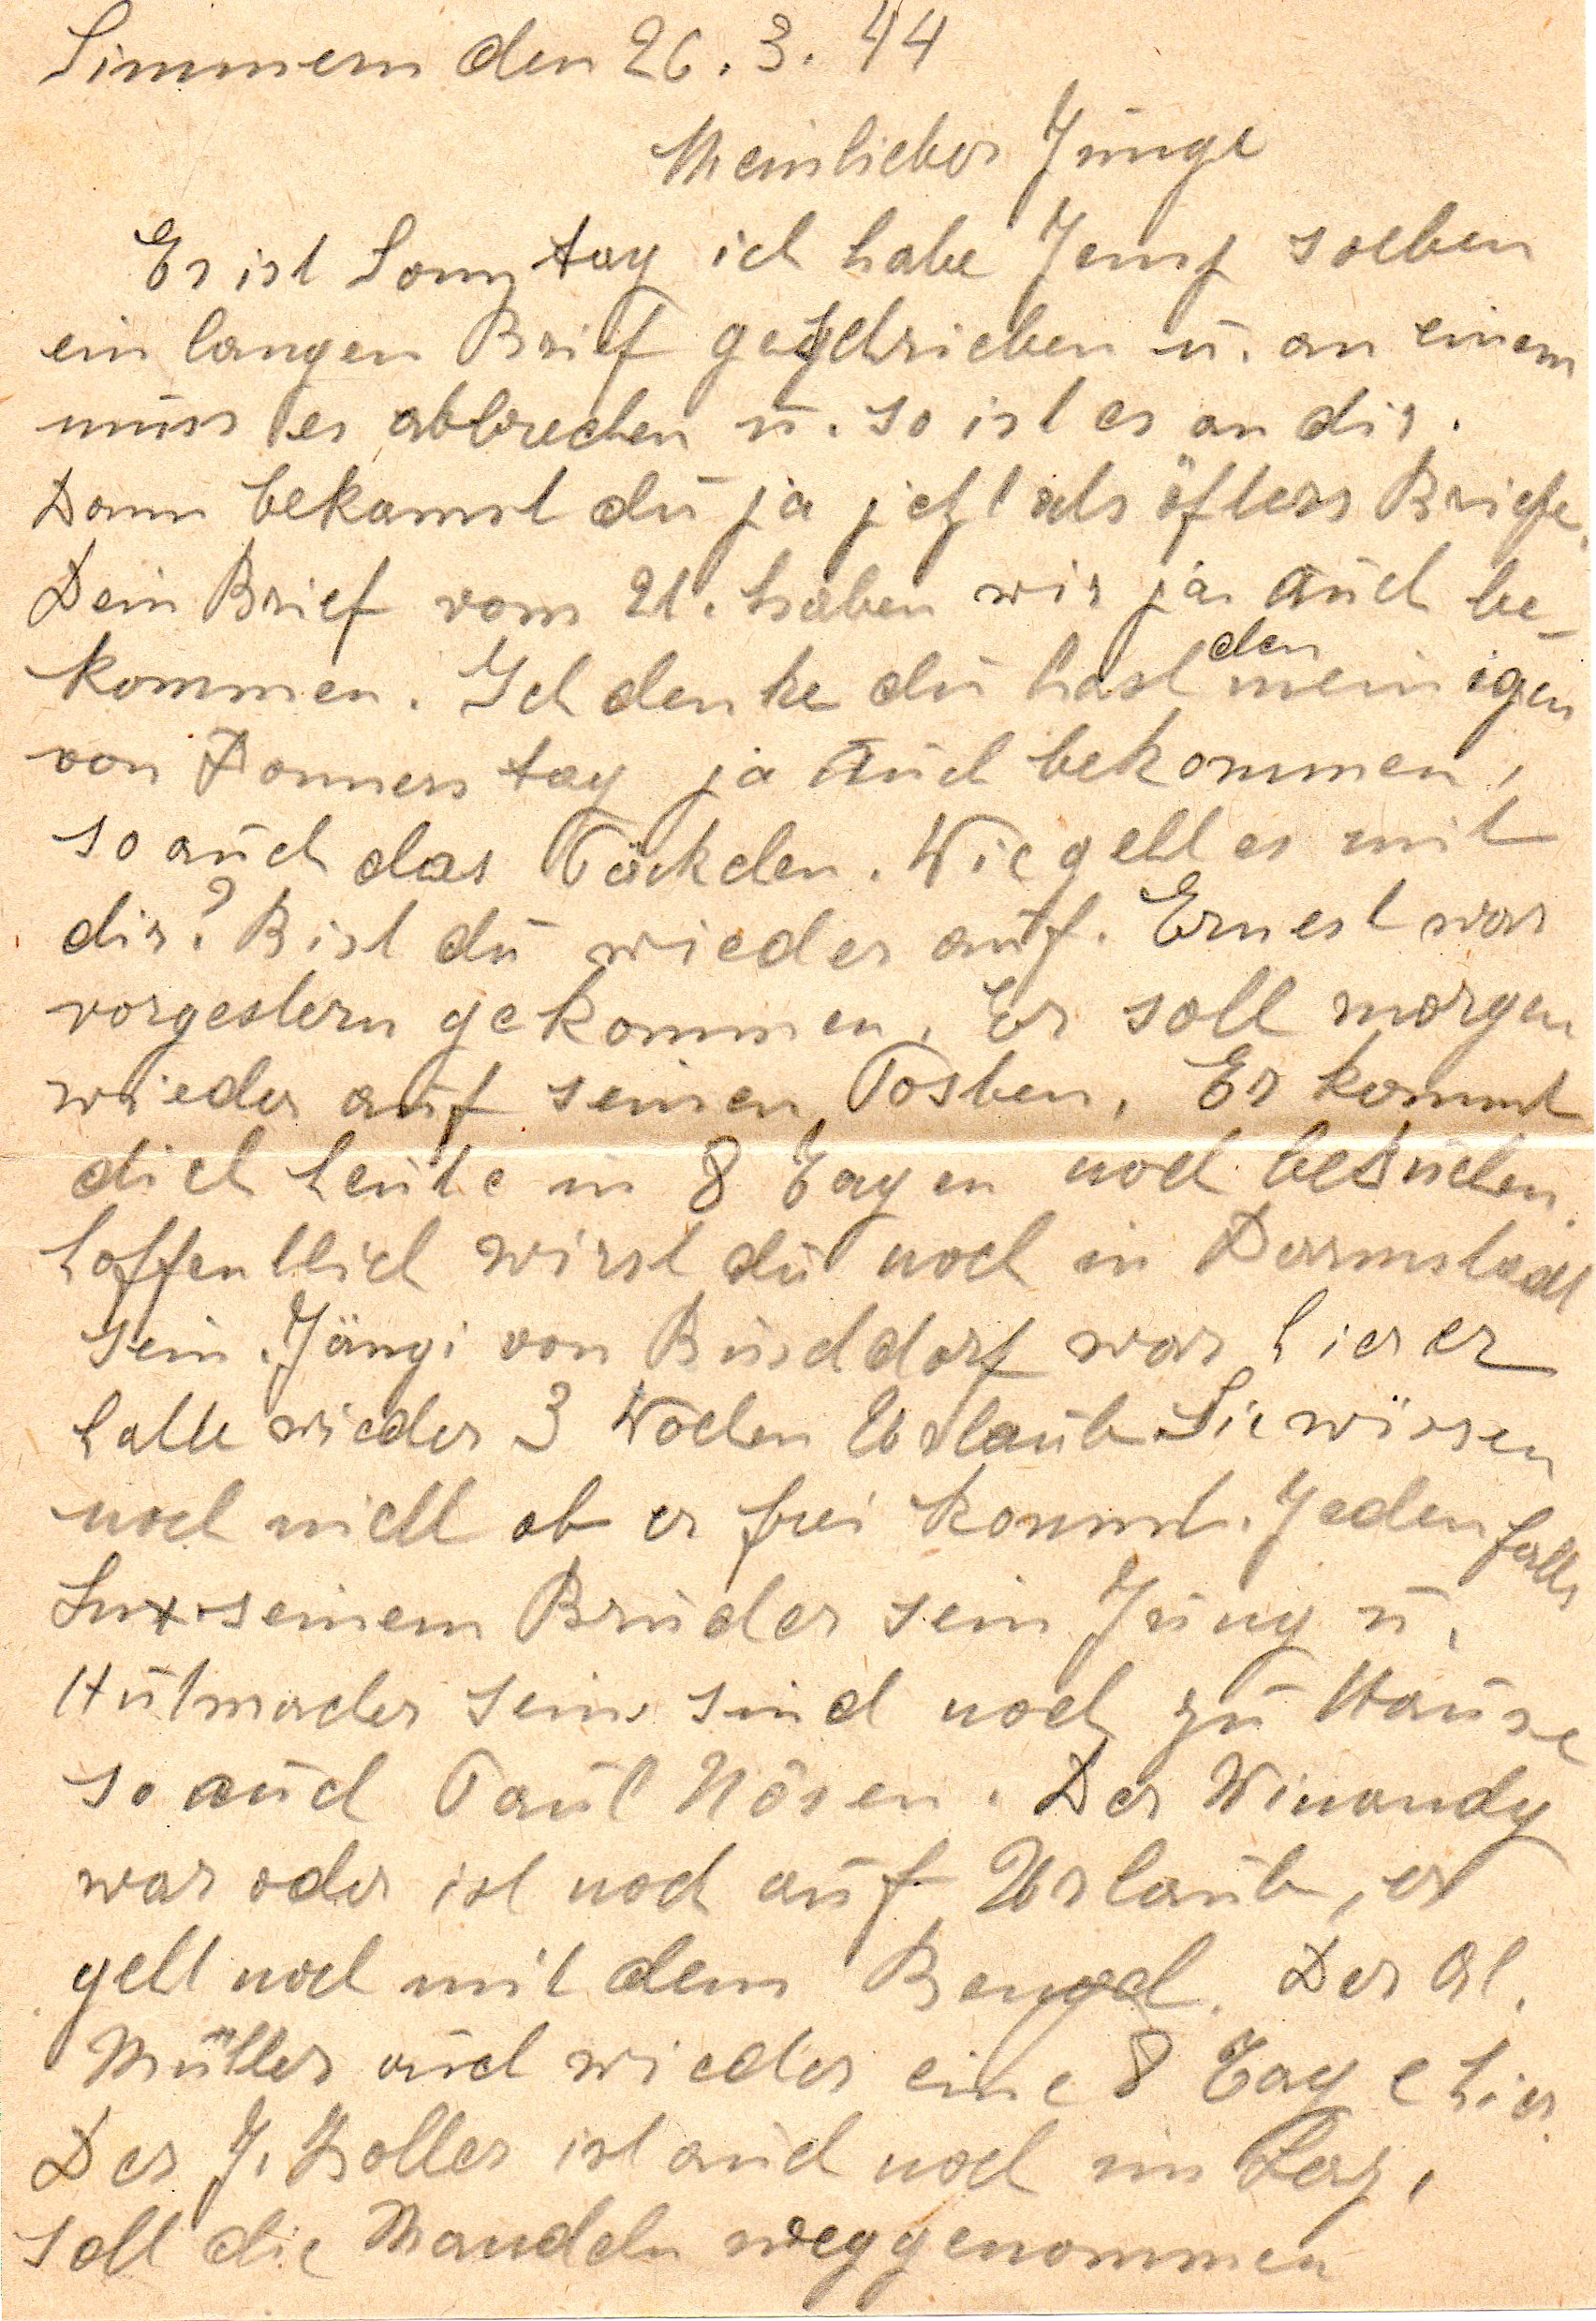 Simmern den 26. 3. 44
Mein lieber Junge
Es ist Sonntag ich habe Jemp soeben
ein langen Brief geschrieben u. an einem
muss es abbrechen u. so ist es an dir.
Dann bekamst du ja jetzt als öfters Briefe.
Dein Brief vom 21. haben wir ja auch be-
kommen. Ich denke du hast den meinigen
von Donnerstag ja auch bekommen,
so auch das Päckchen. Wie geht es mit
dir? Bist du wieder auf. Ernest war
vorgestern gekommen. Er soll morgen
wieder auf seinen Posten. Er kommt
dich heute in 8 Tagen noch besuchen.
hoffentlich wirst du noch in Darmstadt
sein. Jängi von Buschdorf war hier er
hatte wieder 3 Wochen Urlaub Sie wissen
noch nicht ob er frei kommt. Jedenfalls
Lux seinem Bruder sein Jung u.
Hutmacher sein sind noch zu Hause
so auch Paul Nösen. Der Winandy
war oder ist noch auf Urlaub, er
geht noch mit dem
Der Al.
Müller auch wieder eine 8 Tage hier
Der J. Zoller ist auch noch im Laz,
soll die Mandeln weggenommen